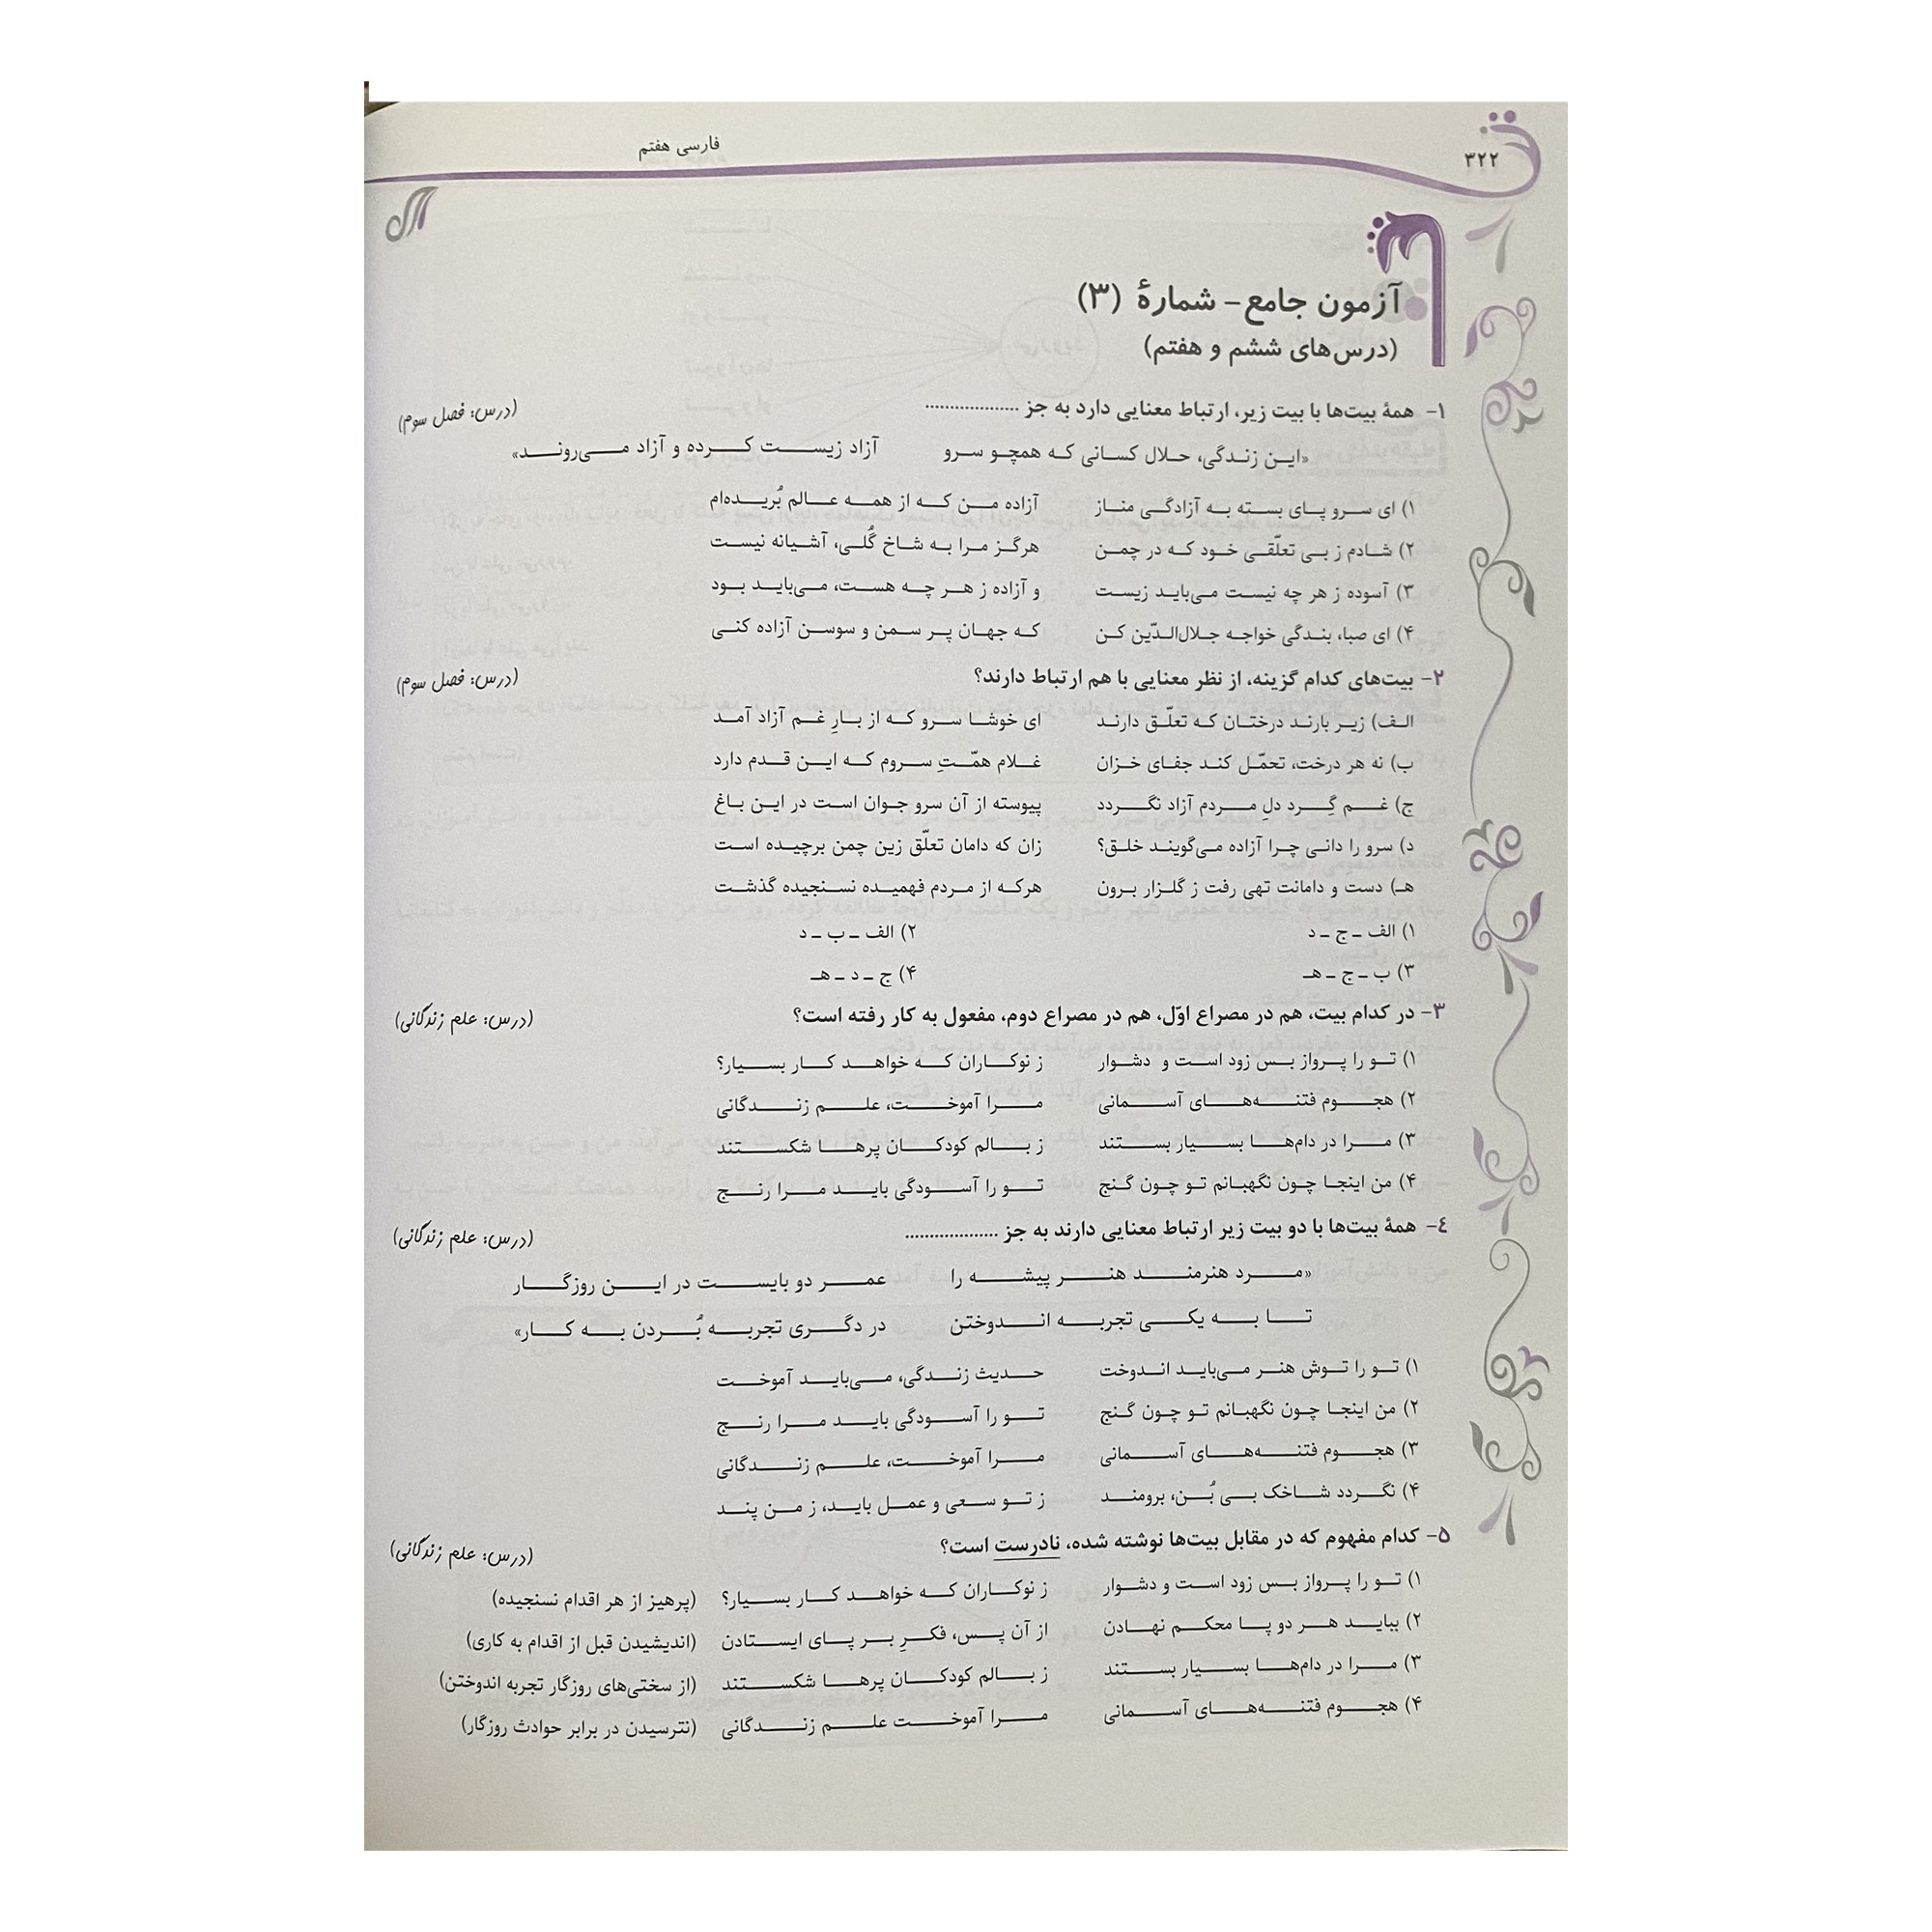 ۳۲۲
فارسی هفتم
آزمون جامع – شمارهٔ (۳)
(درس‌های ششم و هفتم)
۱- همهٔ بیت‌ها با بیت زیر، ارتباط معنایی دارد به جز ................... (درس: فصل سوم)
«این زندگی، حلال کسانی که همچو سرو آزاد زیست کرده و آزاد می‌روند»
۱) ای سرو پای بسته به آزادگی مناز آزاده من که از همه عالم بُریده‌ام
۲) شادم ز بی تعلّقی خود که در چمن هرگز مرا به شاخ گُلی، آشیانه نیست
۳) آسوده ز هر چه نیست می‌باید زیست و آزاده ز هر چه هست، می‌باید بود
۴) ای صبا، بندگی خواجه جلال‌الدّین کن که جهان پر سمن و سوسن آزاده کنی
۲- بیت‌های کدام گزینه، از نظر معنایی با هم ارتباط دارند؟ (درس: فصل سوم)
الف) زیر بارند درختان که تعلّق دارند ای خوشا سرو که از بارِ غم آزاد آمد
ب) نه هر درخت، تحمّل کند جفای خزان غلام همّتِ سروم که این قدم دارد
ج) غم گِرد دلِ مردم آزاد نگردد پیوسته از آن سرو جوان است در این باغ
د) سرو را دانی چرا آزاده می‌گویند خلق؟ زان که دامان تعلّق زین چمن برچیده است
هـ) دست و دامانت تهی رفت ز گلزار برون هرکه از مردم فهمیده نسنجیده گذشت
۱) الف – ج – د ۲) الف – ب – د
۳) ب – ج – هـ ۴) ج – د – هـ
۳- در کدام بیت، هم در مصراع اوّل، هم در مصراع دوم، مفعول به کار رفته است؟ (درس: علم زندگانی)
۱) تو را پرواز بس زود است و دشوار ز نوکاران که خواهد کار بسیار؟
۲) هجوم فتنه‌های آسمانی مرا آموخت، علم زندگانی
۳) مرا در دام‌ها بسیار بستند ز بالم کودکان پرها شکستند
۴) من اینجا چون نگهبانم تو چون گنج تو را آسودگی باید مرا رنج
۴- همهٔ بیت‌ها با دو بیت زیر ارتباط معنایی دارند به جز ................... (درس: علم زندگانی)
«مرد هنرمند هنر پیشه را عمر دو بایست در این روزگار
تا به یکی تجربه اندوختن در دگری تجربه بُردن به کار»
۱) تو را توش هنر می‌باید اندوخت حدیث زندگی، می‌باید آموخت
۲) من اینجا چون نگهبانم تو چون گنج تو را آسودگی باید مرا رنج
۳) هجوم فتنه‌های آسمانی مرا آموخت، علم زندگانی
۴) نگردد شاخک بی بُن، برومند ز تو سعی و عمل باید، ز من پند
۵- کدام مفهوم که در مقابل بیت‌ها نوشته شده، نادرست است؟ (درس: علم زندگانی)
۱) تو را پرواز بس زود است و دشوار ز نوکاران که خواهد کار بسیار؟ (پرهیز از هر اقدام نسنجیده)
۲) بباید هر دو پا محکم نهادن از آن پس، فکرِ بر پای ایستادن (اندیشیدن قبل از اقدام به کاری)
۳) مرا در دام‌ها بسیار بستند ز بالم کودکان پرها شکستند (از سختی‌های روزگار تجربه اندوختن)
۴) هجوم فتنه‌های آسمانی مرا آموخت علم زندگانی (نترسیدن در برابر حوادث روزگار)